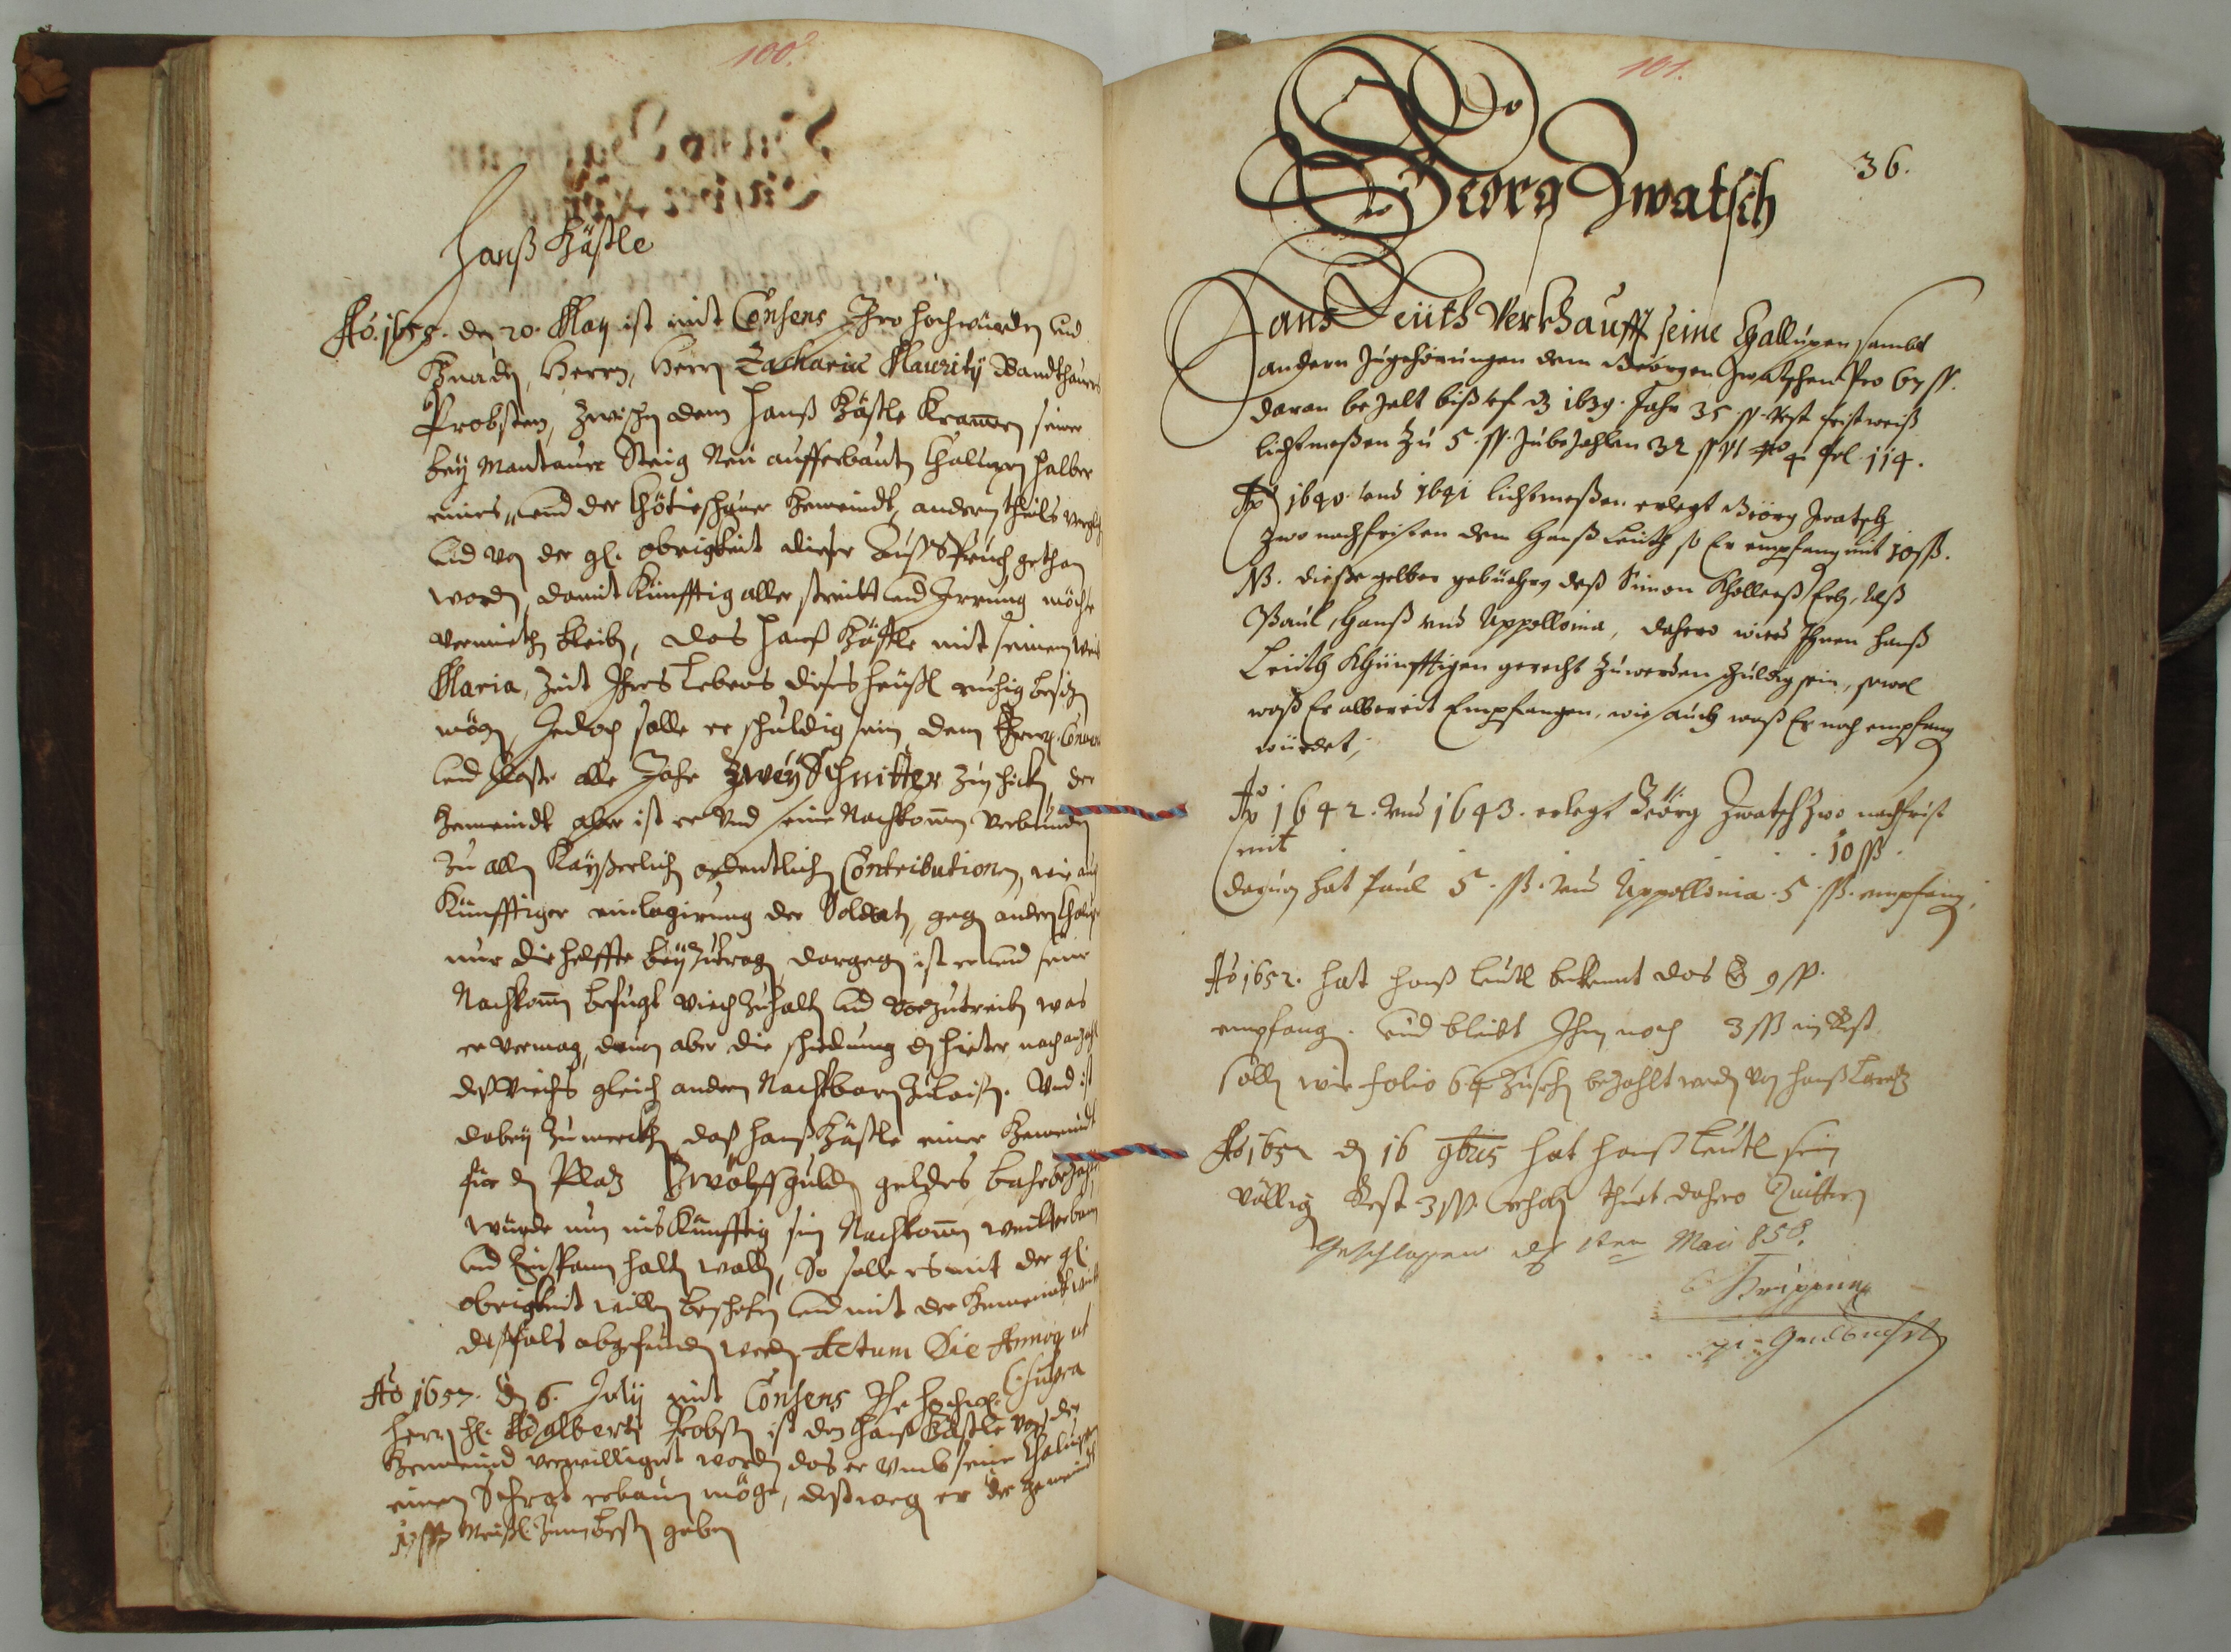 100.
Hanß Käßle
Ao. 1655. den 20. May ist mit Consens Ihro Hochwürden und
Gnaden, Herrn, Herrn Zachariae Maurity Bandthauers
Probsten, zwischen dem Hanß Käßle Kramern seiner
bey Mantauer Steig Neu aufferbauten Chaluppen halber
eines, und der Chotieschauer Gemeindt, andern theils vergl
und von der gl. obrigkeit dieser Auß Spruch gethan
worden, damit künfftig aller streitt und Irrung möchte
vermieth bleiben, das Hanß Käßle mit seinem Weib
Maria, Zeit Ihres Lebens dises Heußl ruhig besitzen
mögen, Jedoch solle er schuldig sein dem
und alle Jahr Zwey Schnitter zuschicken, der
Gemeindt aber ist er Und seine Nachkommen verbunden
Zu allen Kayßerlichen ordentlichen Contributionen, wie auch
Künfftiger einlogirung der Soldaten, gegen andern
nur die helffte beyZutragen, dargegen ist er und seine
Nachkommen befugt viech Zuhalten und vorzutreiben was
er vermag, davon aber die schüdung den Hietter nach anzahl
deß Viechs gleich andern Nachtbarn Zulaisten. Und ist
dabey Zumercken daß Hanß Käßle einer Gemeindt
für den Platz Zwölff gulden geldes bahr bezahlt,
würde nun ins Künfftig sein Nachkommen weitter bauen
und Einspann halten wollen, So solle es mit der gl.
obrigkeit willen beschehen und mit der Gemeindt
desfals abgefunden werden. Actum Die Annoq ut
supra
Ao 1657. den 6. July mit Consens Ihr Hochw.
Herrn H. Adalberti Probsten ist dem Hanß Käßle von der
Gemeind verwilliget worden das er Umb seine Chaluppen
einen Schrot erbauen möge, destwegen er der Gemeindt
Meißl. Zum besten geben
101.
36.
Georg Zwatsch
Hans Leuth Verkhaufft seine Challupen sambt
andern Zugehörungen dem Geörgen Zwatschen Pro 67 ß.
daran bezalt biß uf dz 1639. Jahr 35 ß. Rest fristweiß
lichtmeßen Zu 5. ß. Zubezahlen 32 ß Vt No 4 Fol. 114.
Ao 1640. und 1641 lichtmeßen erlegt Geörg Zwatsch
Zwo nachfristen dem Hanß Leuth so Er empfang mit 10 ß.
NB. dießes gelber gebüehrn deß Simon Khollers Erb, Alß
Paul, Hanß und Appollonia, dahero wierd Ihnen Hanß
Leuth Khünfftigen gerecht Zuwerden schuldig sein, sowol
waß Er albereit Empfangen, wie auch waß Er noch empfang
würdet,
Ao 1642. Und 1643. erlegt Geörg Zwatsch Zwo nachfrist
mit . . . . 10 ß.
daruon hat Paul 5. ß. und Appollonia. 5. ß. empfang.
Ao 1652. hat Hanß Leutl bekennt das Er 9 ß.
empfang. und bleibt Ihm noch 3 ß ein Rest
sollen wie folio 64 Zusehen bezahlt werden von Hanß
Ao 1657 den 16 9bris hat Hanß Leutl sein
völlig Rest 3 ß. erhoben thuet dahero Quittirn
Geschlossen den 1ten Mai 858.